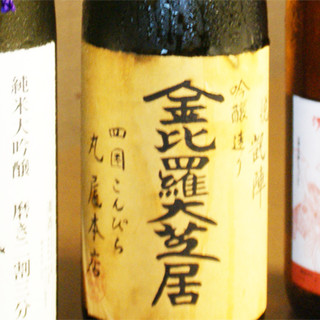 悦凱陣
吟醸造り
金比羅大芝居
四国こんぴら
丸尾本店
純米大吟醸 磨き二割三分